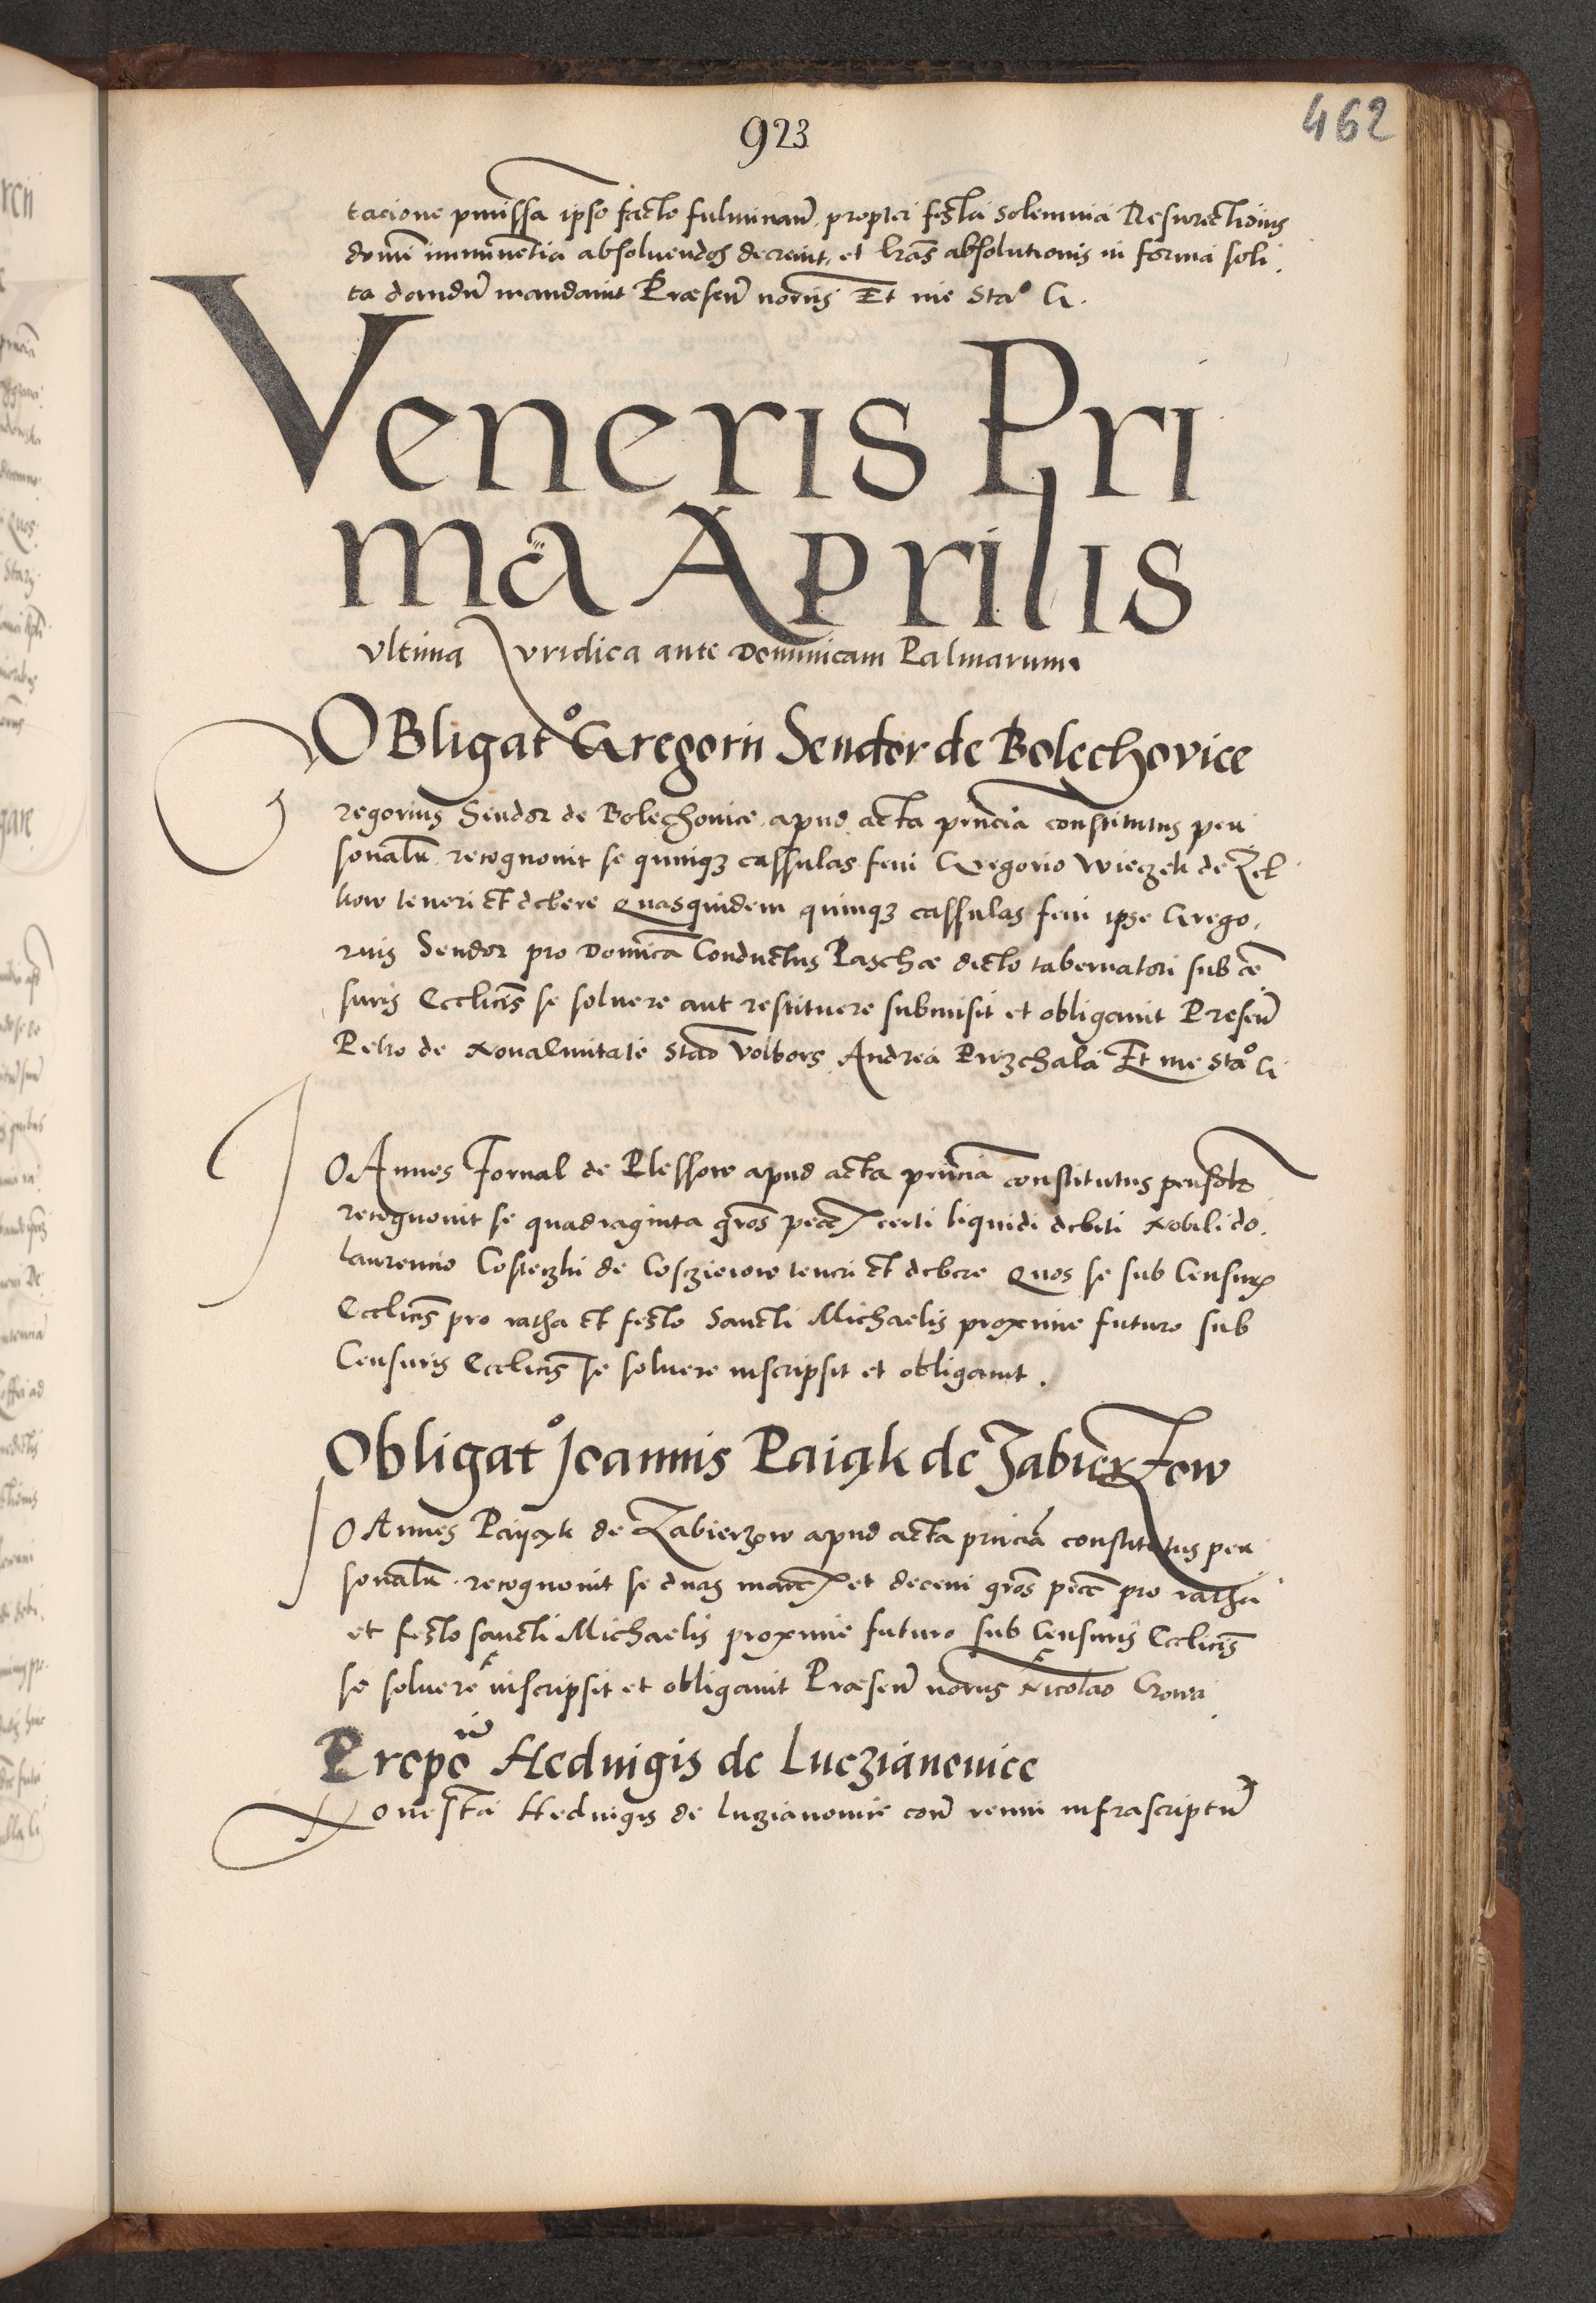 462
923
tacione pmissa ipso facto fulminatū propter festa solemnia Resurectionis
domī imminētia absoluendos decreuit, et lrās absolutionis in forma soli
ta dandū mandauit Præsen̄ notriis Et me Sta° G.
Veneris Pri
ma Aprilis
Vltima Iuridica ante Dominicam Palmarum
OBligat° Gregorii Sendor de Bolechovice
Gregorius Sendor de Bolechouice apud acta prn̄cia constitutus per
sonalr̄ recognouit se quinq₃ cassulas feni Gregorio Wieczek de Zel
kow teneri et debere Quasquidem quinq₃ cassulas feni ipse Grego
rius Sendor pro Domica Conductus Paschæ dicto tabernatori sub cē
suris Ecclicīs se soluere aut restituere submisit et obligauit Presen̄
Petro de Noualciuitate Stāo Volbors Andrea Przchala Et me Sta° G
IOAnnes Fornal de Plessow apud acta prn̄cia constitutus personalr̄
recognouit se quadraginta gros̄ pecc̄ certi liquidi debiti Nobili do.
Laurencio Costeczki de Cosczieiow teneri et debere Quos se sub Censuris
Ecclicīs pro ratha et festo Sancti Michaelis proxime futuro sub
Censuris Ecclicīs se soluere inscripsit et obligauit.
Obligat° Joannis Paiąk de Zabierzow
IOAnnes Payąk de Zabierzow apud acta prn̄cia constitutus per
sonalr̄ recognouit se duas marc̄ et decem gros̄ pecc̄ pro ratha
et festo sancti Michaelis proxime futuro sub Censuris Ecclicīs
se soluere inscripsit et obligauit Præsen̄ notriis Nicolao Growa
Propoīo Hedvigis de Luczianovice
Honesta Hedvigis de Luczianouice corā venit infrascriptū